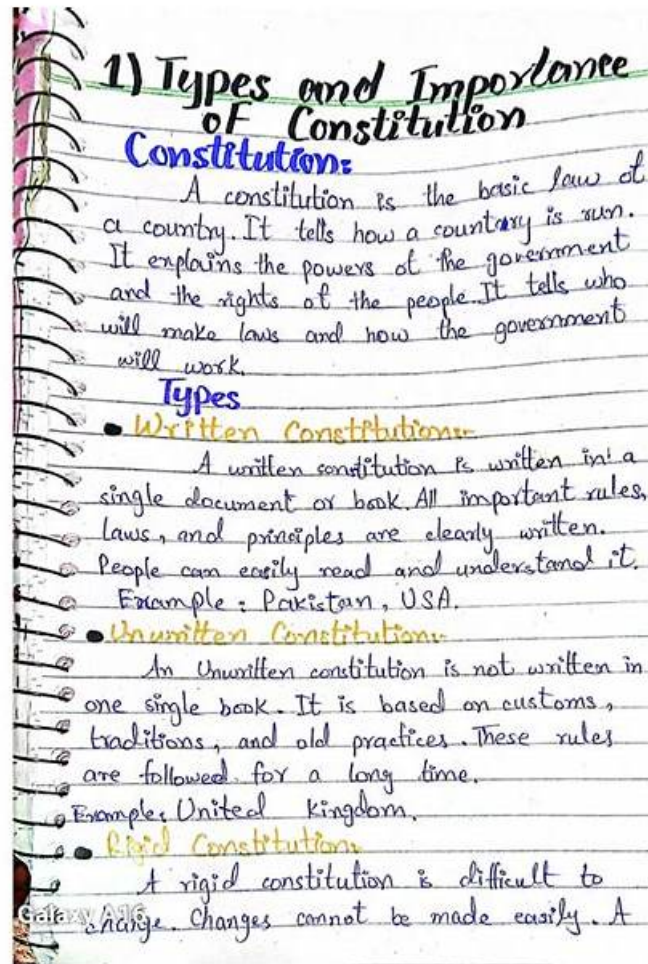 1) Types and Importance
of Constitution
Constitution:
A constitution is the basic law of
a country. It tells how a countary is run.
It explains the powers of the government
and the rights of the people. It tells who
will make laws and how the government
will work.
Types
• Written Constitution:-
A written constitution is written in a
single document or book. All important rules,
laws, and principles are clearly written.
People can easily read and understand it.
Example : Pakistan, USA.
• Unwritten Constitution:-
An Unwritten constitution is not written in
one single book. It is based on customs,
traditions, and old practices. These rules
are followed for a long time.
Example: United kingdom.
• Rigid Constitution:-
A rigid constitution is difficult to
change. Changes cannot be made easily. A
Galaxy A16